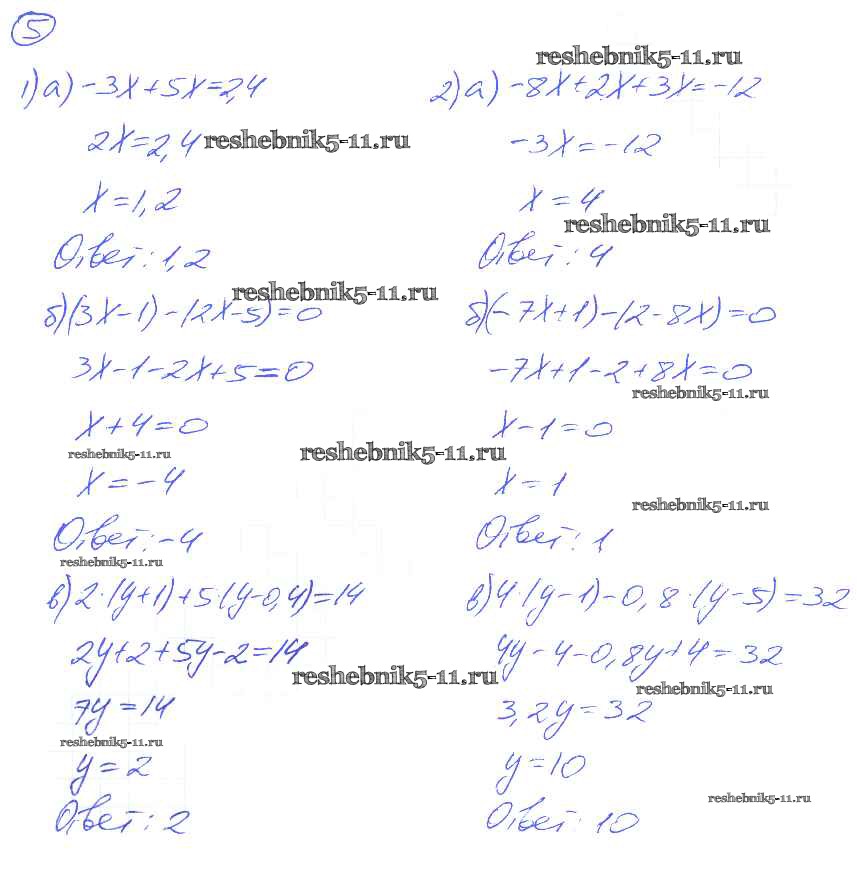 5
1) а) -3x+5x=2,4
2x=2,4
x=1,2
Ответ: 1,2
б) (3x-1)-(2x-5)=0
3x-1-2x+5=0
x+4=0
x=-4
Ответ: -4
в) 2·(y+1)+5·(y-0,4)=14
2y+2+5y-2=14
7y=14
y=2
Ответ: 2
2) а) -8x+2x+3x=-12
-3x=-12
x=4
Ответ: 4
б) (-7x+1)-(2-8x)=0
-7x+1-2+8x=0
x-1=0
x=1
Ответ: 1
в) 4·(y-1)-0,8·(y-5)=32
4y-4-0,8y+4=32
3,2y=32
y=10
Ответ: 10
reshebnik5-11.ru
reshebnik5-11.ru
reshebnik5-11.ru
reshebnik5-11.ru
reshebnik5-11.ru
reshebnik5-11.ru
reshebnik5-11.ru
reshebnik5-11.ru
reshebnik5-11.ru
reshebnik5-11.ru
reshebnik5-11.ru
reshebnik5-11.ru
reshebnik5-11.ru